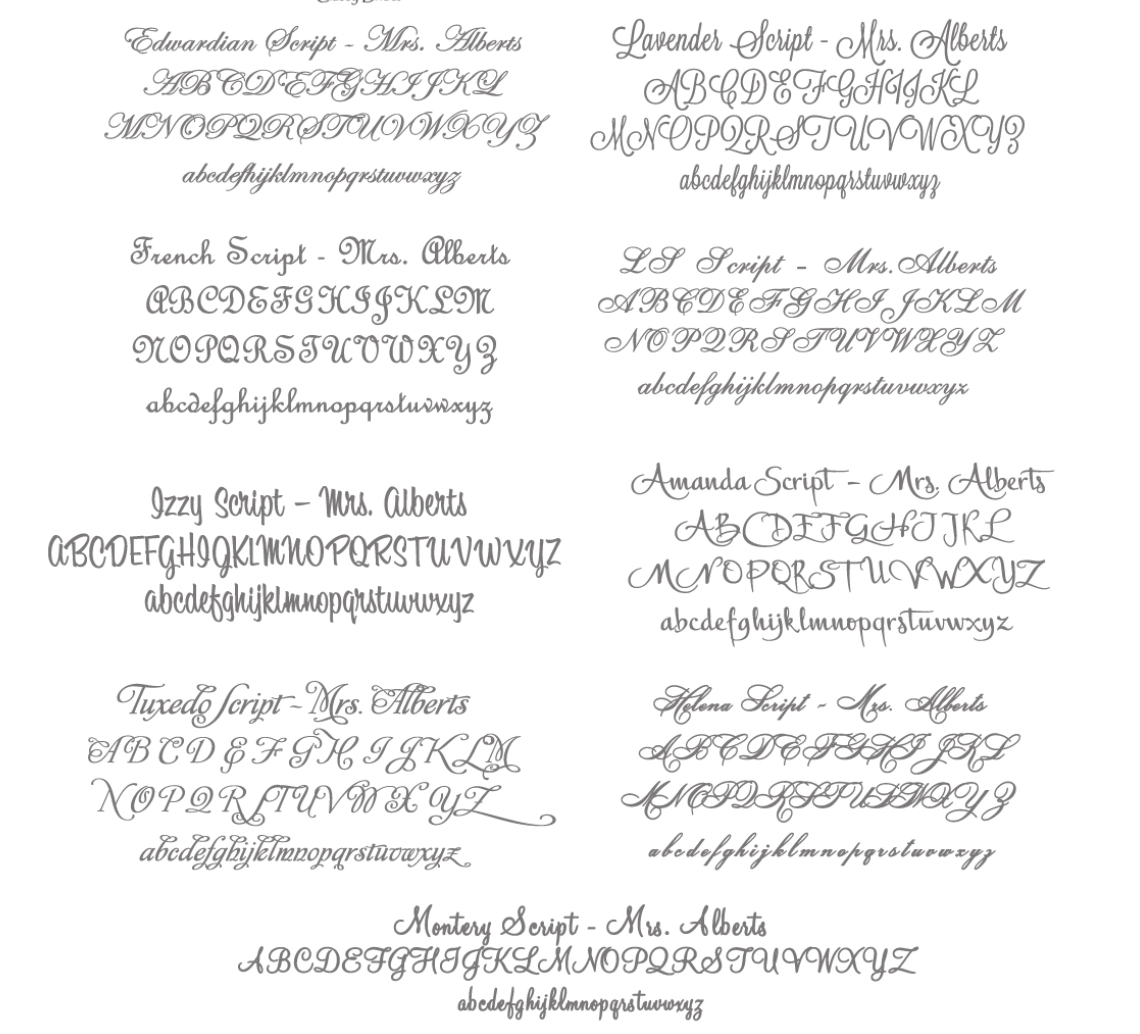 Edwardian Script - Mrs. Alberts
ABCDEFGHIJKL
MNOPQRSTUVWXYZ
abcdefhijklmnopqrstuvwxyz
Lavender Script - Mrs. Alberts
ABCDEFGHIJKL
MNOPQRSTUVWXYZ
abcdefghijklmnopqrstuvwxyz
French Script - Mrs. Alberts
ABCDEFGHIJKLM
NOPQRSTUVWXYZ
abcdefghijklmnopqrstuvwxyz
LS Script - Mrs. Alberts
ABCDEFGHIJKLM
NOPQRSTUVWXYZ
abcdefghijklmnopqrstuvwxyz
Izzy Script - Mrs. Alberts
ABCDEFGHIJKLMNOPQRSTUVWXYZ
abcdefghijklmnopqrstuvwxyz
Amanda Script - Mrs. Alberts
ABCDEFGHIJKL
MNOPQRSTUVWXYZ
abcdefghijklmnopqrstuvwxyz
Tuxedo Script - Mrs. Alberts
ABCDEFGHIJKLM
NOPQRSTUVWXYZ
abcdefghijklmnopqrstuvwxyz
Helena Script - Mrs. Alberts
ABCDEFGHIJKL
MNOPQRSTUVWXYZ
abcdefghijklmnopqrstuvwxyz
Montery Script - Mrs. Alberts
ABCDEFGHIJKLMNOPQRSTUVWXYZ
abcdefghijklmnopqrstuvwxyz